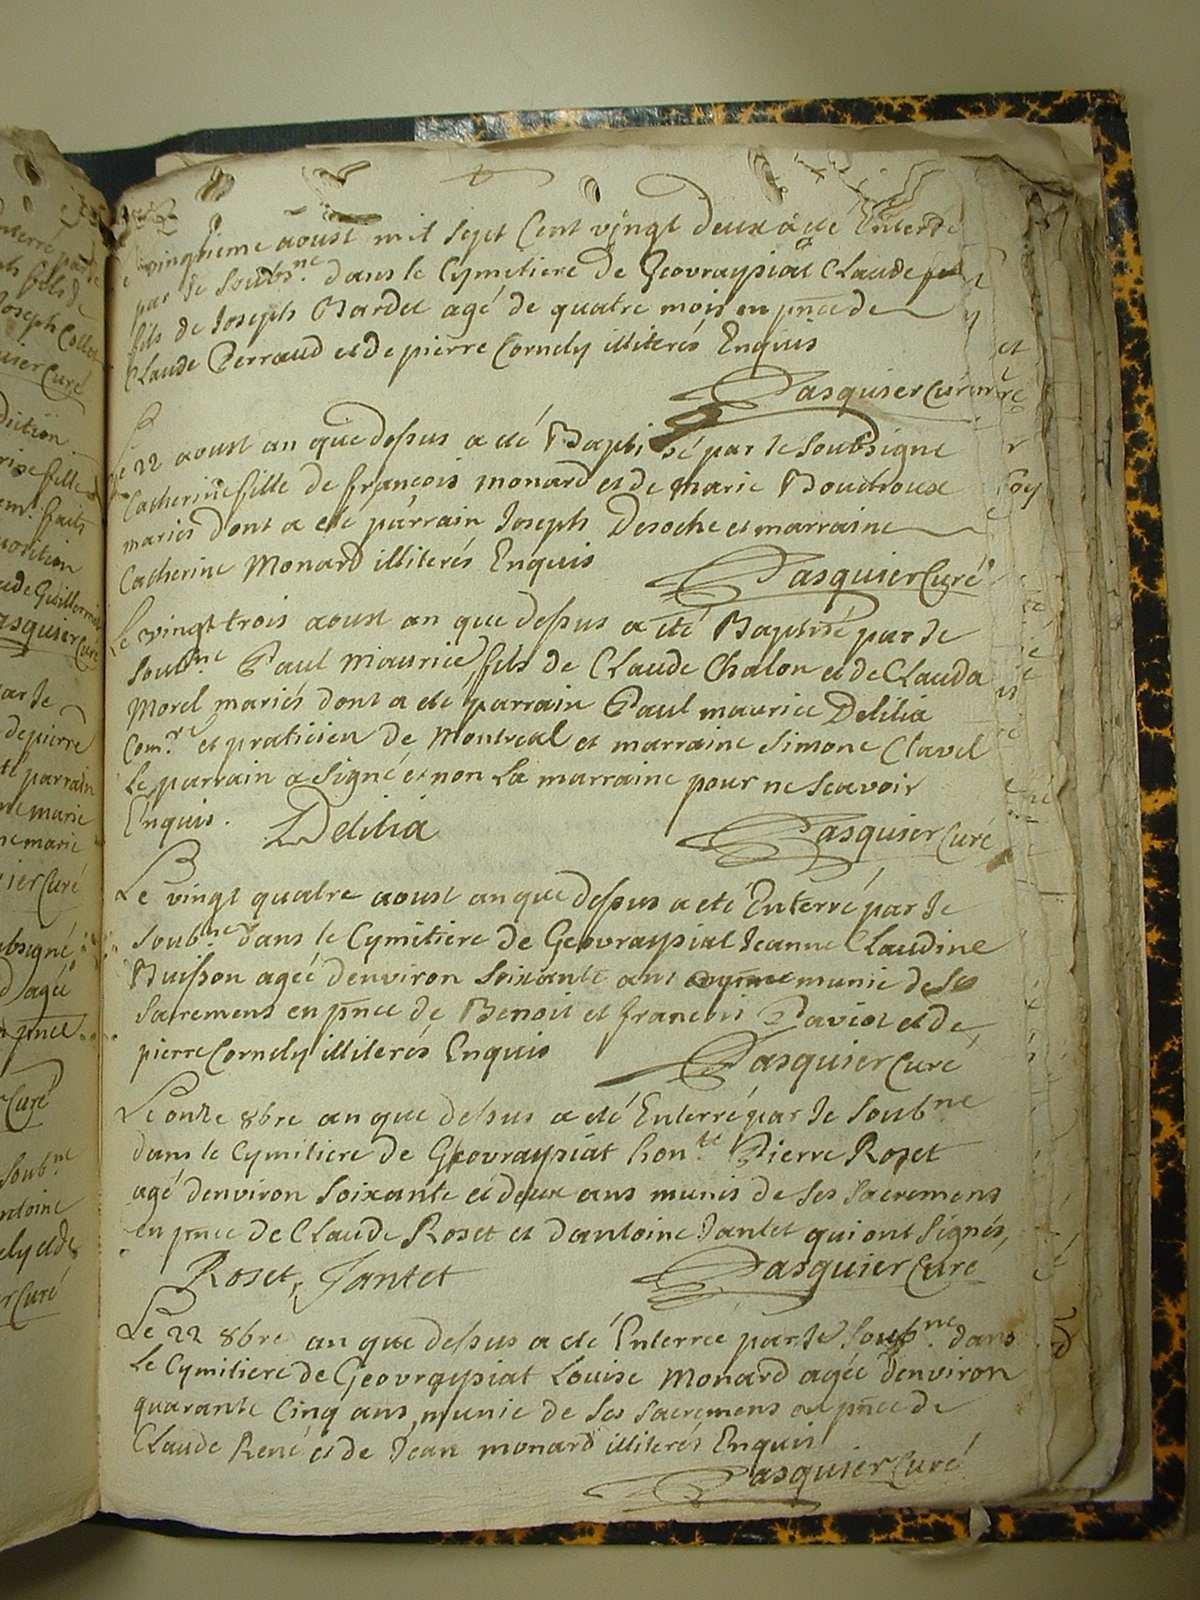 vingtieme aoust mil sept Cent vingt deux a eté Enterré
par le soubs.ne dans le Cymetiere de Geovraysiat Claude
fils de Joseph Bardet agé de quatre mois en pnce de
Claude Perraud et de pierre Cornely illiterés Enquis
Pasquier Curé
Le 22 aoust an que dessus a eté Baptisé par le Soubsigné
Catherine fille de françois monard et de marie Boudroux
mariés dont a eté parrain Joseph Desoche et marraine
Catherine Monard illiterés Enquis
Pasquier Curé
Le vingt trois aoust an que dessus a été Baptisé par le
soub.ne Paul Maurice fils de Claude Chalon et de Clauda
Morel mariés dont a eté parrain Paul maurice Delilia
Com.re et praticien de Montreal et marraine Simone Clavel
le parrain a signé et non la marraine pour ne scavoir
Enquis.
Delilia
Pasquier Curé
Le vingt quatre aoust an que dessus a eté Enterré par le
soub.ne dans le Cymitiere de Geovraysiat Jeanne Claudine
Buisson agée denviron soixante ans munie de ses
sacremens en pnce de Benoit et francois Paviot et de
pierre Cornely illiterés Enquis
Pasquier Curé
Le onze 8bre an que dessus a eté Enterré par le soub.ne
dans le Cymitiere de Geovraysiat hon.te Pierre Roset
agé denviron soixante et deux ans munis de ses sacremens
en pnce de Claude Roset et dantoine Jantet qui ont signés,
Roset, Jantet
Pasquier Curé
Le 22 8bre an que dessus a eté Enterrée par le soub.ne dans
le Cymitiere de Geovraysiat Louise Monard agée denviron
quarante Cinq ans munie de ses sacremens en pnce de
Claude René et de Jean monard illiterés Enquis
Pasquier Curé